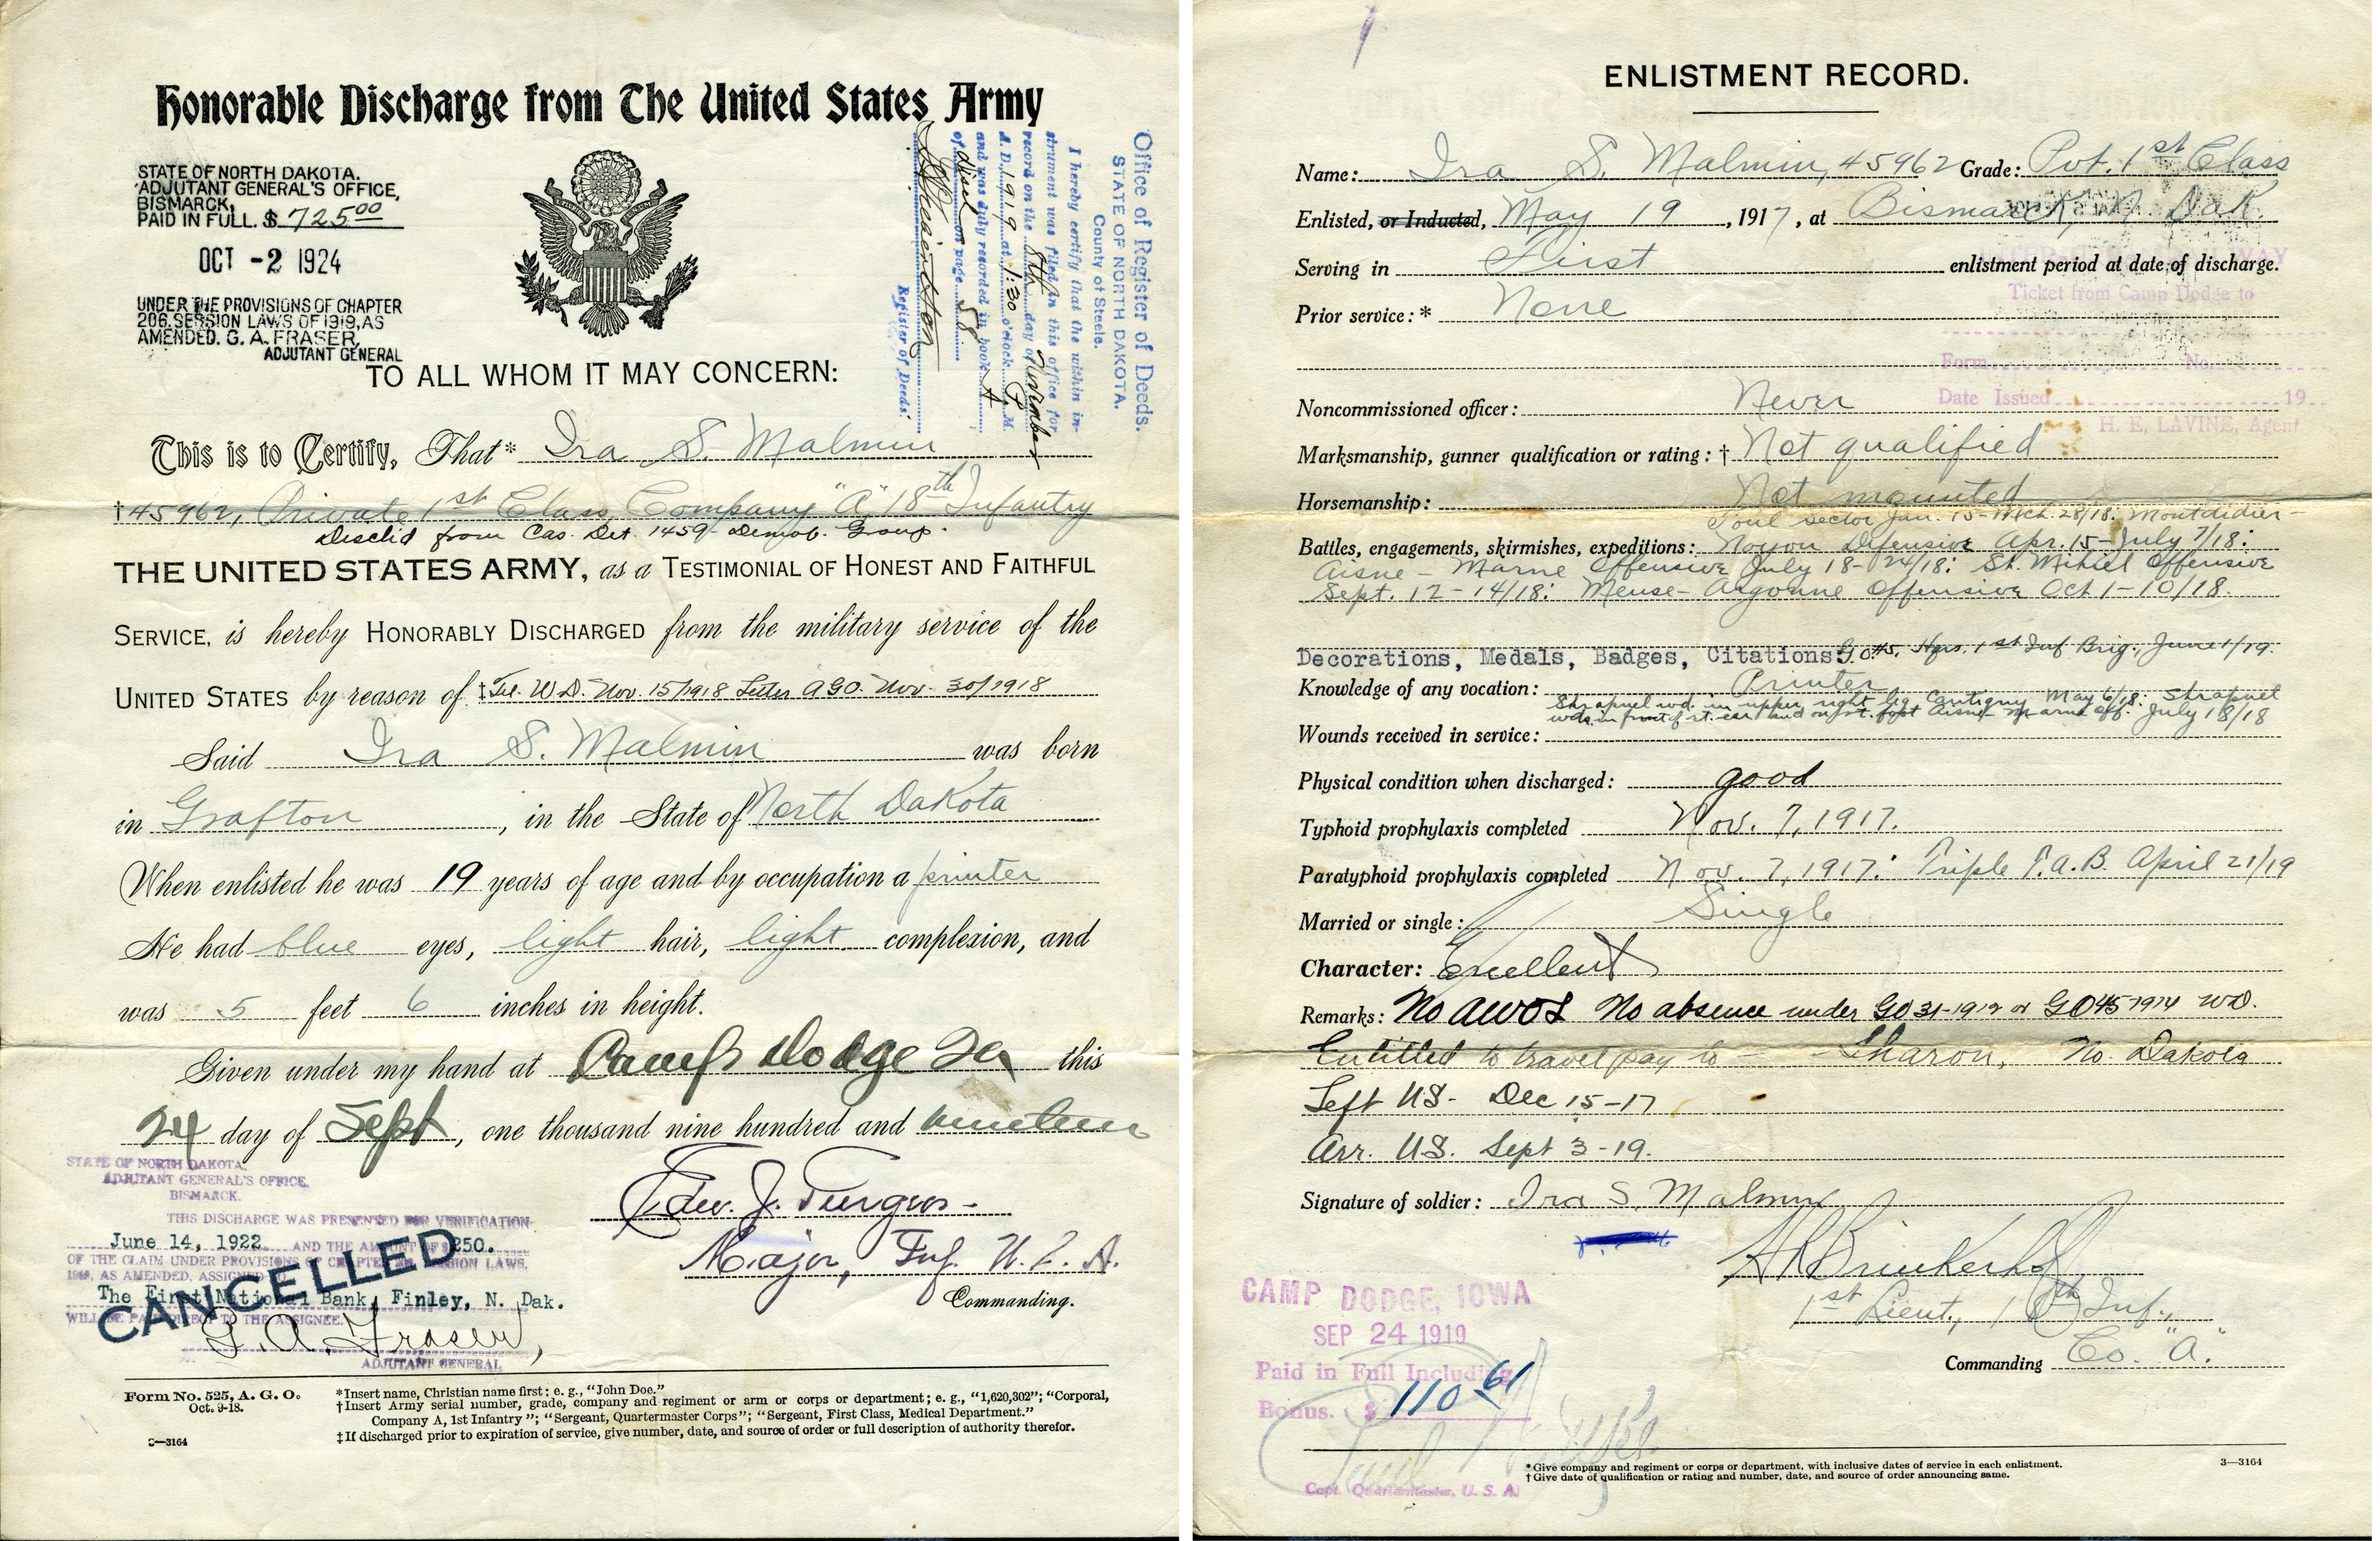 Honorable Discharge from The United States Army
STATE OF NORTH DAKOTA.
ADJUTANT GENERAL'S OFFICE,
BISMARCK,
PAID IN FULL. $ 725.00
OCT -2 1924
UNDER THE PROVISIONS OF CHAPTER
206, SESSION LAWS OF 1919, AS
AMENDED. G. A. FRASER,
ADJUTANT GENERAL
Office of Register of Deeds.
STATE OF NORTH DAKOTA.
County of Steele.
I hereby certify that the within in-
strument was filed in this office for
record on the 8th day of November
A. D. 1919 at 1:30 o'clock P. M.
and was duly recorded in book A
of on page 58
Register of Deeds.
TO ALL WHOM IT MAY CONCERN:
This is to Certify, That* Ira S. Malmin
†45962, Private 1st Class, Company "A" 18th Infantry
Disch'd from Cas. Det. 1459 Demob. Group.
THE UNITED STATES ARMY, as a TESTIMONIAL OF HONEST AND FAITHFUL
SERVICE, is hereby HONORABLY DISCHARGED from the military service of the
UNITED STATES by reason of ‡Tel. W.D. Nov. 15/1918 Letter AGO. Nov. 30/1918
Said Ira S. Malmin was born
in Grafton, in the State of North Dakota
When enlisted he was 19 years of age and by occupation a printer
He had blue eyes, light hair, light complexion, and
was 5 feet 6 inches in height.
Given under my hand at Camp Dodge Ia this
24 day of Sept, one thousand nine hundred and nineteen
Edw. J.
Major, Inf. U.S.A.
Commanding.
STATE OF NORTH DAKOTA,
ADJUTANT GENERAL'S OFFICE,
BISMARCK.
THIS DISCHARGE WAS PRESENTED FOR VERIFICATION
June 14, 1922 AND THE AMOUNT OF $250.
OF THE CLAIM UNDER PROVISIONS OF CHAPTER SESSION LAWS,
AS AMENDED, ASSIGNED
The First National Bank, Finley, N. Dak.
WILL BE PAID DIRECT TO THE ASSIGNEE.
CANCELLED
G. A. Fraser,
ADJUTANT GENERAL
Form No. 525, A. G. O.
Oct. 9-18.
*Insert name, Christian name first; e. g., "John Doe."
†Insert Army serial number, grade, company and regiment or arm or corps or department; e. g., "1,620,302"; "Corporal,
Company A, 1st Infantry"; "Sergeant, Quartermaster Corps"; "Sergeant, First Class, Medical Department."
‡If discharged prior to expiration of service, give number, date, and source of order or full description of authority therefor.
3—3164
ENLISTMENT RECORD.
Name: Ira S. Malmin, 45962 Grade: Pvt. 1st Class
Enlisted, or Inducted, May 19, 1917, at Bismarck, N. Dak.
Serving in First enlistment period at date of discharge.
Ticket from Camp Dodge to
Prior service:* None
Form No.
Date Issued 19
H. E. LAVINE, Agent
Noncommissioned officer: Never
Marksmanship, gunner qualification or rating:† Not qualified
Horsemanship: Not mounted
Toul sector Jan. 15-Mch. 28/18: Montdidier-
Battles, engagements, skirmishes, expeditions: Noyon Defensive Apr. 15-July 7/18:
Aisne-Marne Offensive July 18-24/18: St. Mihiel Offensive
Sept. 12-14/18: Meuse-Argonne Offensive Oct 1-10/18.
Decorations, Medals, Badges, Citations G.O.#5, Hqrs. 1st Inf Brig., June 1/19.
Knowledge of any vocation: Printer
Shrapnel wd. in upper right leg Cantigny May 6/18: Shrapnel
wds. in front of rt. ear and on rt. foot Aisne-Marne Off. July 18/18
Wounds received in service:
Physical condition when discharged: good
Typhoid prophylaxis completed Nov. 7, 1917.
Paratyphoid prophylaxis completed Nov. 7, 1917: Triple T.A.B. April 21/19
Married or single: Single
Character: Excellent
Remarks: No AWOL No absence under GO 31-1912 or GO 45-1914 WD.
Entitled to travel pay to - Sharon, No. Dakota
Left US- Dec 15-17
Arr. US. Sept 3-19.
Signature of soldier: Ira S. Malmin
H R Brinkerhoff
1st Lieut., 18th Inf.,
Commanding Co. "A".
CAMP DODGE, IOWA
SEP 24 1919
Paid in Full Including
Bonus. $ 110.61
Capt. Quartermaster, U. S. A.
*Give company and regiment or corps or department, with inclusive dates of service in each enlistment.
†Give date of qualification or rating and number, date, and source of order announcing same.
3—3164